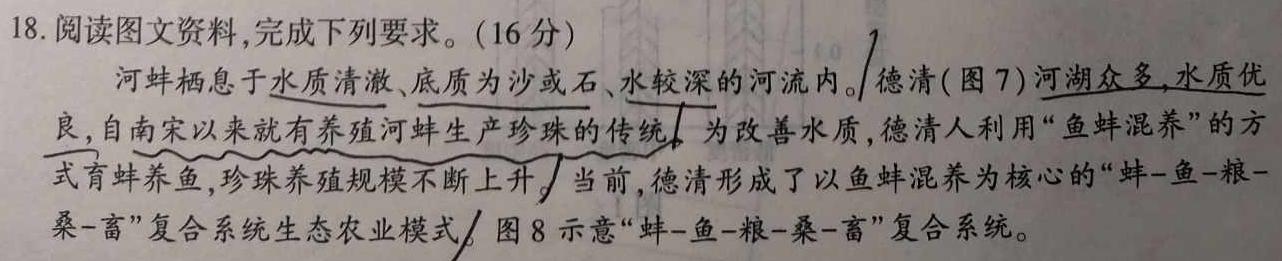 18. 阅读图文资料,完成下列要求。(16分)
河蚌栖息于水质清澈、底质为沙或石、水较深的河流内。德清(图7)河湖众多,水质优
良,自南宋以来就有养殖河蚌生产珍珠的传统。为改善水质,德清人利用“鱼蚌混养”的方
式育蚌养鱼,珍珠养殖规模不断上升。当前,德清形成了以鱼蚌混养为核心的“蚌-鱼-粮-
桑-畜”复合系统生态农业模式。图8示意“蚌-鱼-粮-桑-畜”复合系统。